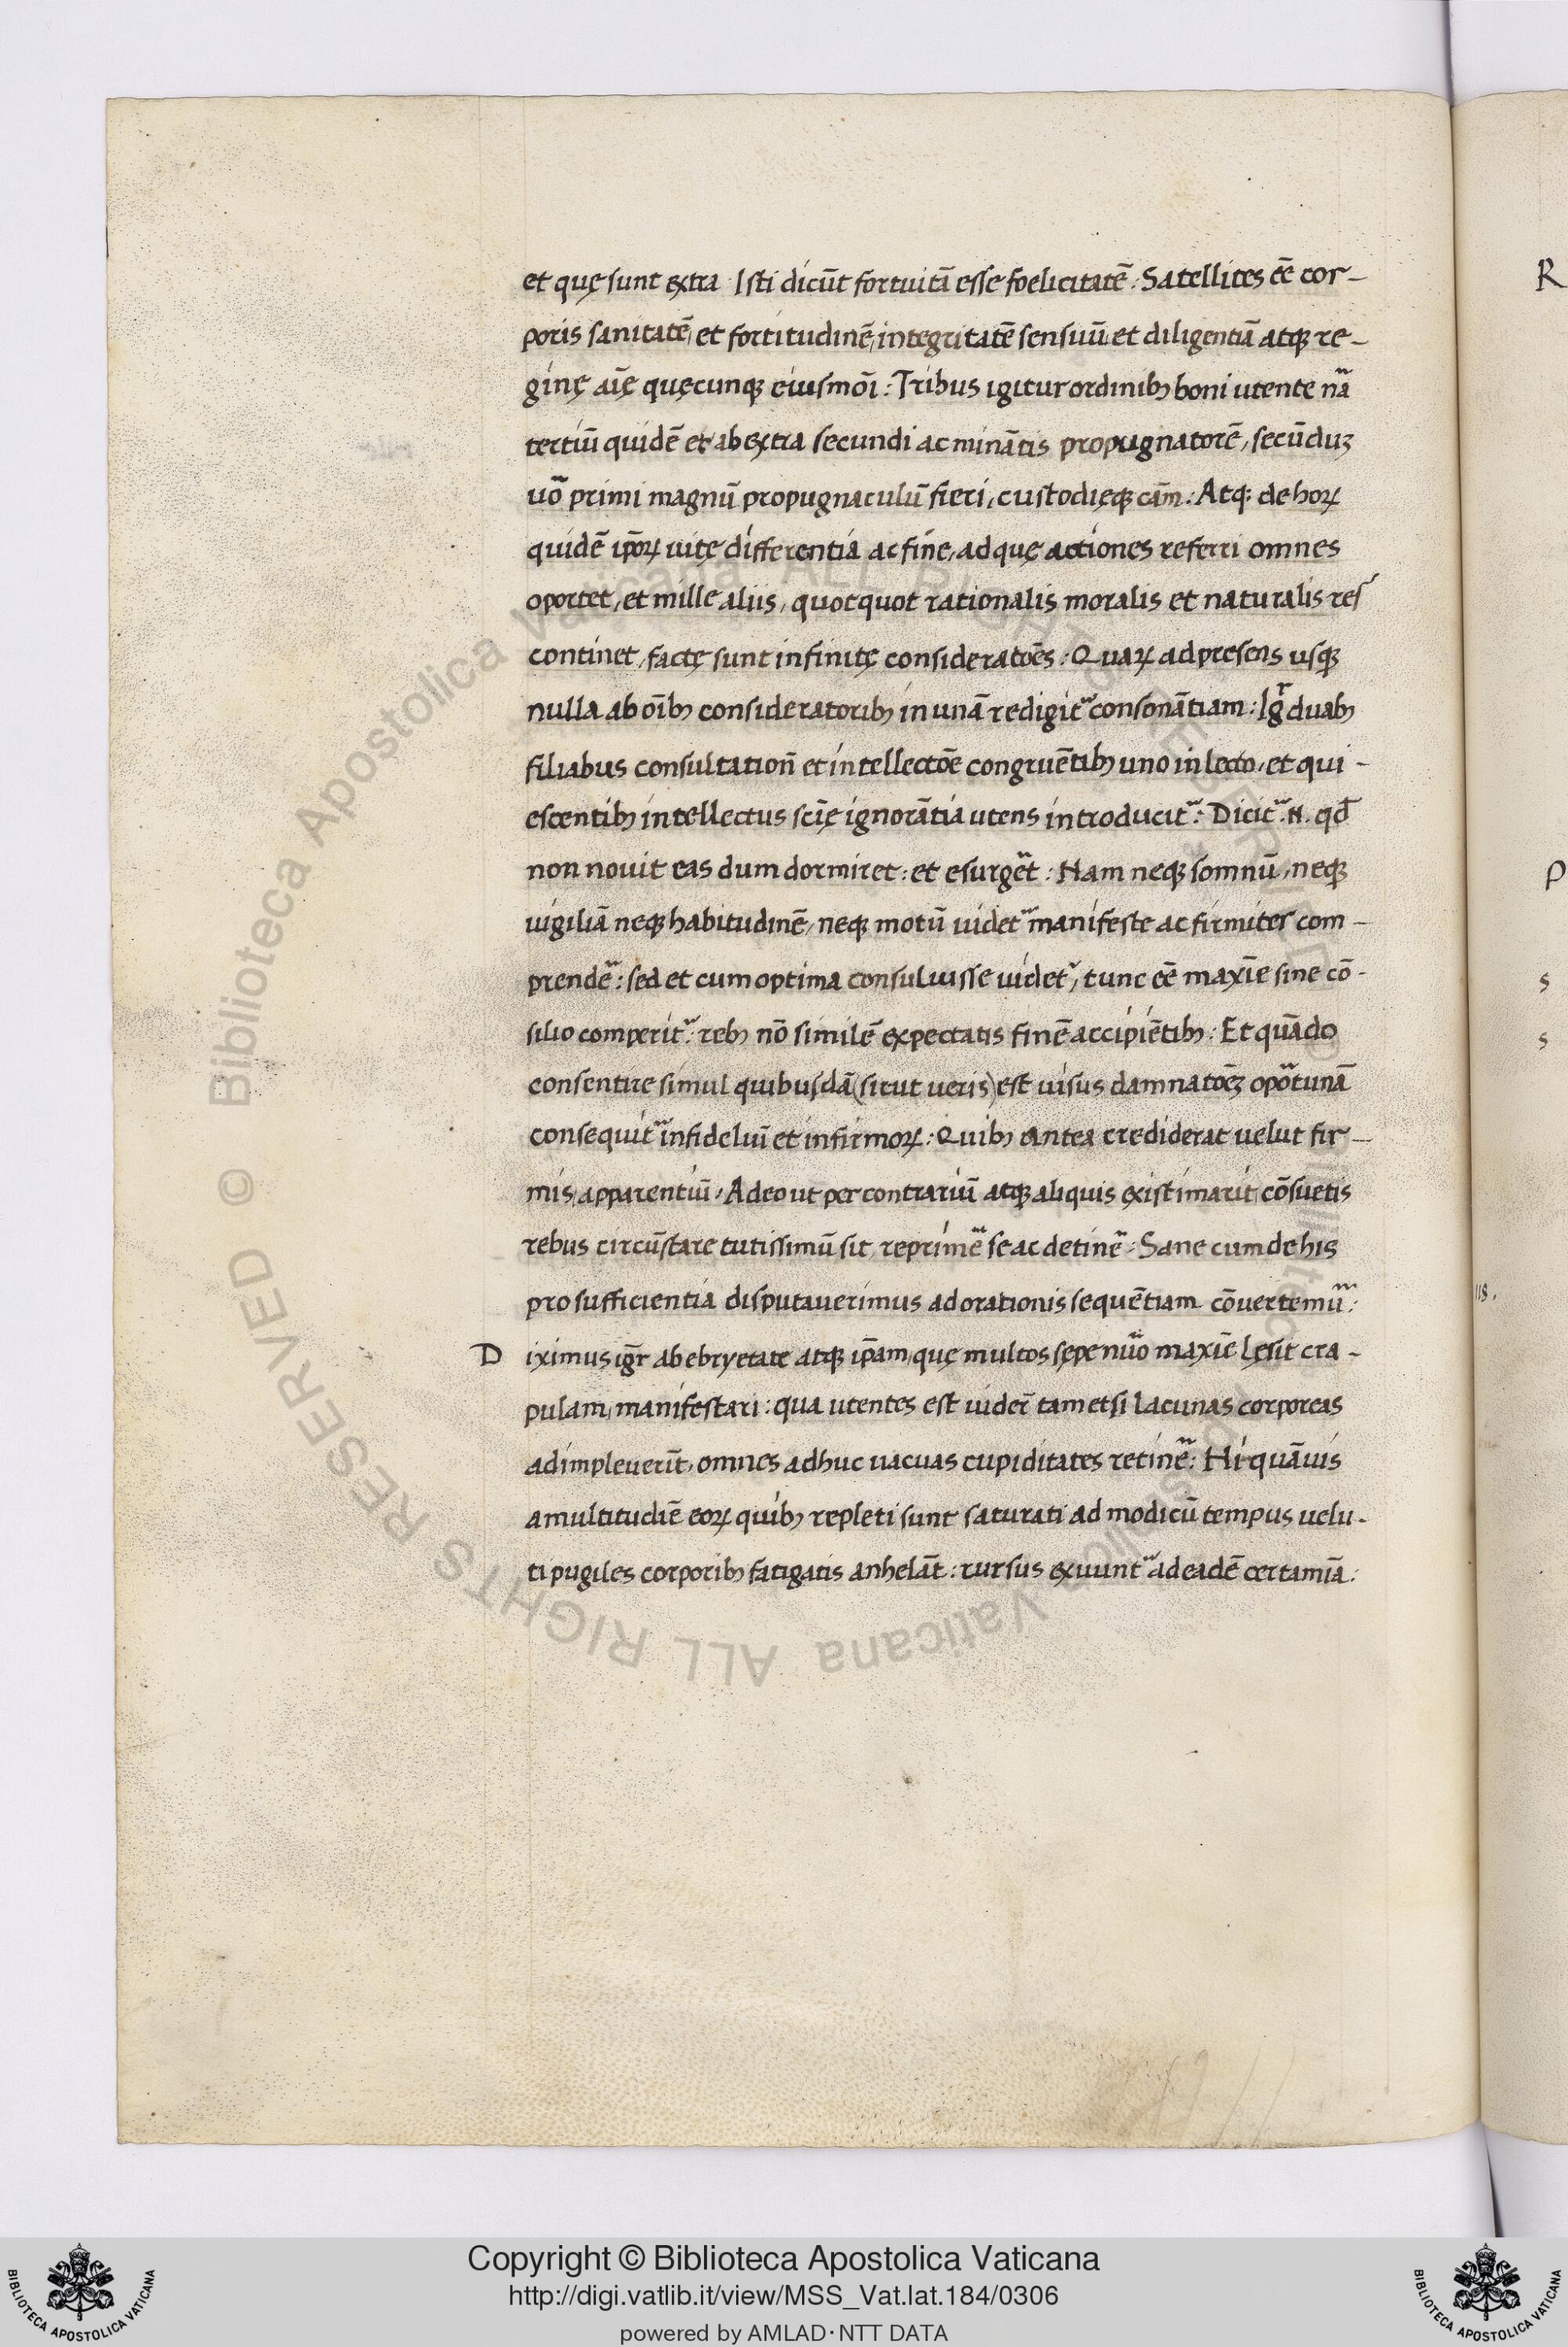 et quę sunt extra Isti dicūt fortuitā esse foelicitatē: Satellites eē cor-
poris sanitatē, et fortitudinē, integritatē sensuū et diligentiā atqꝫ re-
ginę aīę quęcunqꝫ eiusmōi: Tribus igitur ordinibꝫ boni utente nā
tertiū quidē et ab extra secundi ac minātis propugnatorē, secūduꝫ
uō primi magnū propugnaculū fieri, custodięqꝫ cām: Atqꝫ de hoꝝ
quidē ipōꝝ uitę differentia ac fine, ad quę actiones referri omnes
oportet, et mille aliis, quotquot rationalis moralis et naturalis res
continet, factę sunt infinitę consideratōes: Quaꝝ ad presens usqꝫ
nulla ab oībꝫ consideratoribꝫ in unā redigit consonātiam: Igr duabꝫ
filiabus consultationī et intellectōe congruētibꝫ uno in lecto, et qui-
escentibꝫ intellectus scię ignorātia utens introducit: Dicit .N. qd
non nouit eas dum dormiret: et esurgēt: Nam neqꝫ somnū, neqꝫ
uigiliā neqꝫ habitudinē, neqꝫ motū uidet manifeste ac firmiter com-
prendē: sed et cum optima consuluisse uidet, tunc eē maxīe sine cō-
silio comperit: rebꝫ nō similē expectatis finē accipiētibꝫ: Et quādo
consentire simul quibusdā (sicut ueris) est uisus damnatōeꝫ opōtunā
consequit infideliū et infirmoꝝ: Quibꝫ antea crediderat uelut fir-
mis, apparentiū, Adeo ut per contrariū atqꝫ aliquis existimarit cōsuetis
rebus circūstare tutissimū sit, reprimē se ac detinē: Sane cum de his
pro sufficientia disputauerimus ad orationis sequētiam cōuertemū:
D iximus igr ab ebryetate atqꝫ ipām, quę multos sępenuō maxīe lęsit cra-
pulam, manifestari: qua utentes est uider tametsi lacunas corporeas
adimpleuerīt, omnes adhuc uacuas cupiditates retinē: Hi quāuis
a multitudiē eoꝝ quibꝫ repleti sunt saturati ad modicū tempus uelu-
ti pugiles corporibꝫ fatigatis anhelāt: rursus exuunt ad eadē certamīa:
R
P
s
s
118.
Biblioteca Apostolica Vaticana ALL RIGHTS RESERVED ©
Biblioteca Apostolica Vaticana ALL RIGHTS RESERVED ©
Copyright © Biblioteca Apostolica Vaticana
http://digi.vatlib.it/view/MSS_Vat.lat.184/0306
powered by AMLAD·NTT DATA
BIBLIOTECA APOSTOLICA VATICANA
BIBLIOTECA APOSTOLICA VATICANA